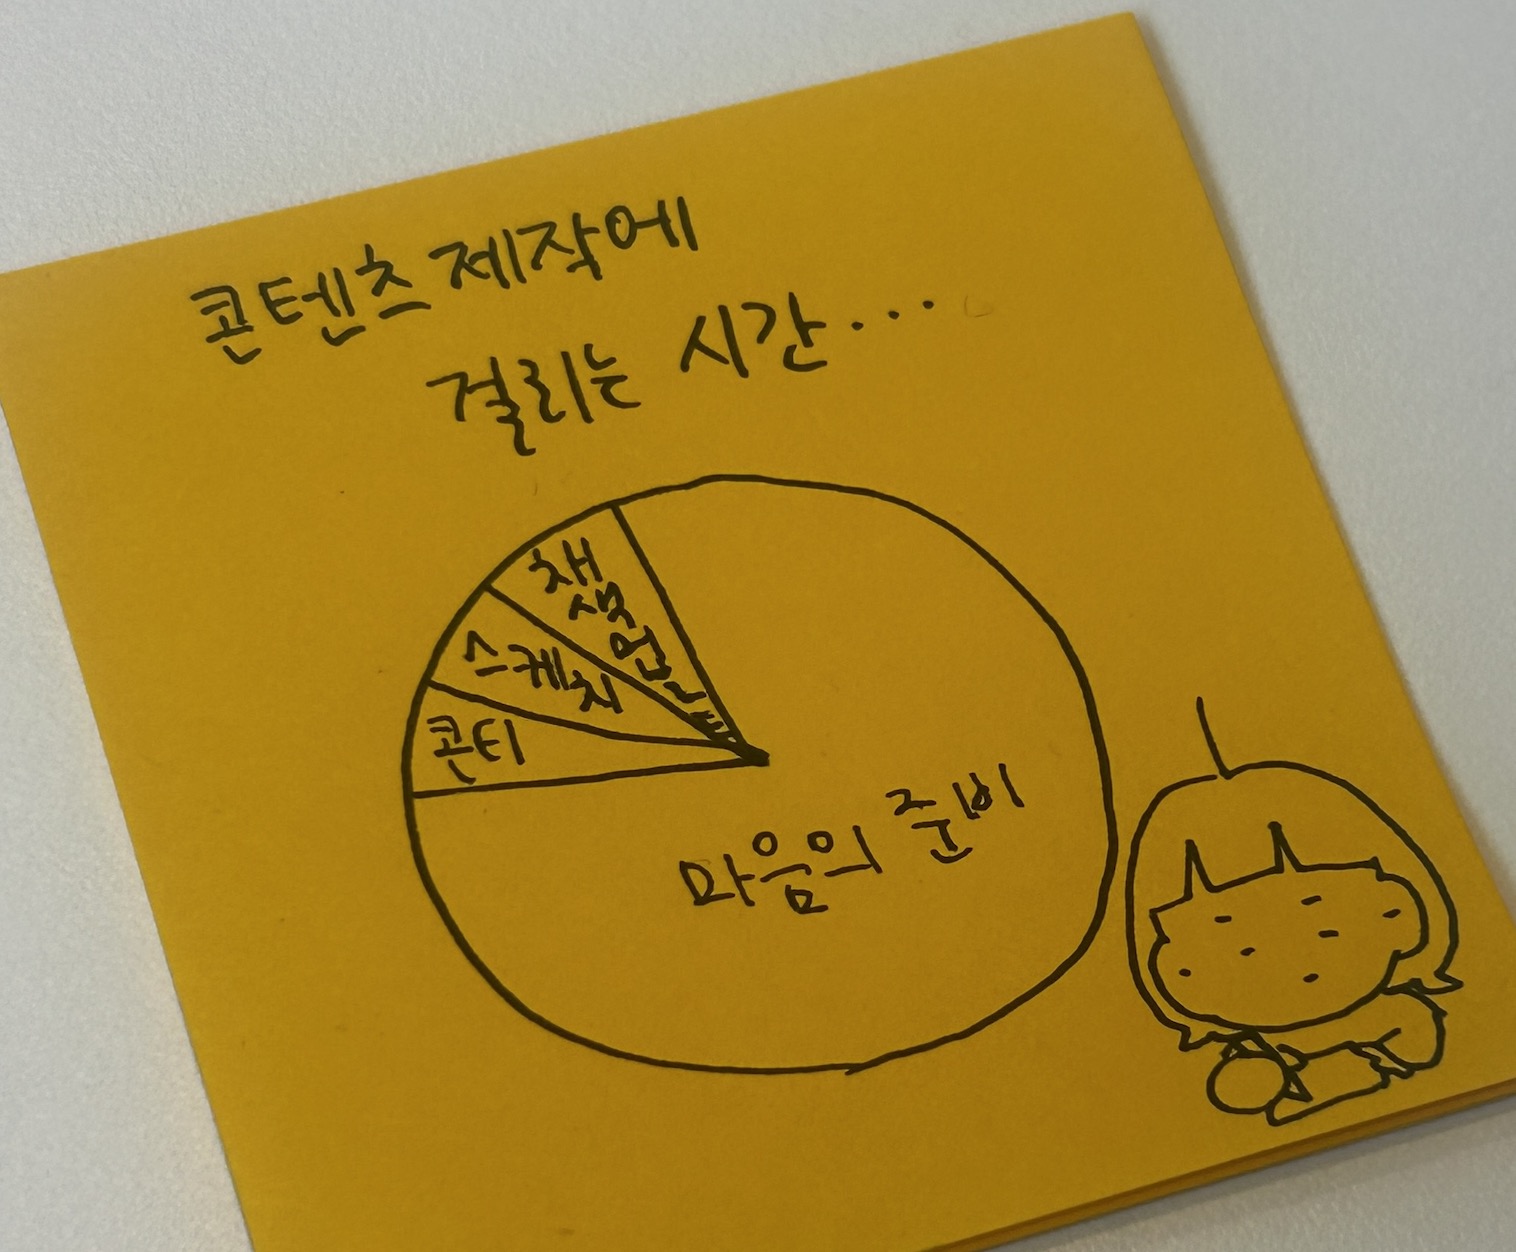 콘텐츠 제작에
걸리는 시간...
채색
스케치
콘티
마음의 준비